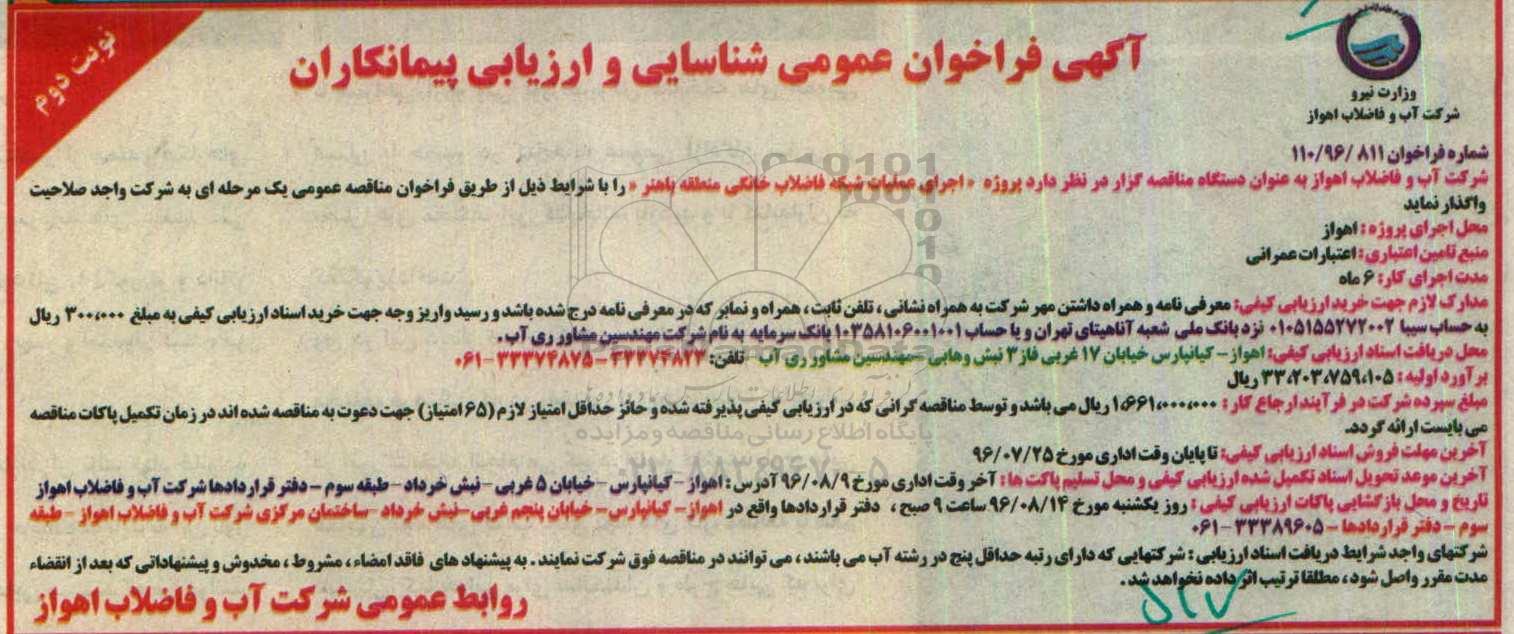 نوبت دوم
آگهی فراخوان عمومی شناسایی و ارزیابی پیمانکاران
وزارت نیرو
شرکت آب و فاضلاب اهواز
شماره فراخوان ۸۱۱ /۱۱۰/۹۶
شرکت آب و فاضلاب اهواز به عنوان دستگاه مناقصه گزار در نظر دارد پروژه « اجرای عملیات شبکه فاضلاب خانگی منطقه باهنر » را با شرایط ذیل از طریق فراخوان مناقصه عمومی یک مرحله ای به شرکت واجد صلاحیت
واگذار نماید
محل اجرای پروژه : اهواز
منبع تامین اعتباری : اعتبارات عمرانی
مدت اجرای کار : ۶ ماه
مدارک لازم جهت خرید ارزیابی کیفی: معرفی نامه و همراه داشتن مهر شرکت به همراه نشانی ، تلفن ثابت ، همراه و نمابر که در معرفی نامه درج شده باشد و رسید واریز وجه جهت خرید اسناد ارزیابی کیفی به مبلغ ۳۰۰،۰۰۰ ریال
به حساب سیبا ۰۱۰۵۱۵۵۲۷۲۰۰۲ نزد بانک ملی شعبه آناهیتای تهران و یا حساب ۱۰۳۵۸۱۰۶۰۰۱۰۰۱ بانک سرمایه به نام شرکت مهندسین مشاور ری آب .
محل دریافت اسناد ارزیابی کیفی: اهواز - کیانپارس خیابان ۱۷ غربی فاز ۳ نبش وهابی - مهندسین مشاور ری آب تلفن: ۳۳۳۷۴۸۲۳ - ۳۳۳۷۴۸۷۵ - ۰۶۱
برآورد اولیه : ۳۳،۲۰۳،۷۵۹،۱۰۵ ریال
مبلغ سپرده شرکت در فرآیند ارجاع کار : ۱،۶۶۱،۰۰۰،۰۰۰ ریال می باشد و توسط مناقصه گرانی که در ارزیابی کیفی پذیرفته شده و حائز حداقل امتیاز لازم (۶۵ امتیاز) جهت دعوت به مناقصه شده اند در زمان تکمیل پاکات مناقصه
می بایست ارائه گردد.
پایگاه اطلاع رسانی مناقصه و مزایده
آخرین مهلت فروش اسناد ارزیابی کیفی: تا پایان وقت اداری مورخ ۹۶/۰۷/۲۵
۰۲۱-۸۸۳۴۹۶۷۰-۵
آخرین موعد تحویل اسناد تکمیل شده ارزیابی کیفی و محل تسلیم پاکت ها : آخر وقت اداری مورخ ۹۶/۰۸/۹ آدرس : اهواز - کیانپارس - خیابان ۵ غربی - نبش خرداد - طبقه سوم - دفتر قراردادها شرکت آب و فاضلاب اهواز
تاریخ و محل بازگشایی پاکات ارزیابی کیفی : روز یکشنبه مورخ ۹۶/۰۸/۱۴ ساعت ۹ صبح ، دفتر قراردادها واقع در اهواز - کیانپارس - خیابان پنجم غربی - نبش خرداد - ساختمان مرکزی شرکت آب و فاضلاب اهواز - طبقه
سوم - دفتر قراردادها - ۳۳۳۸۹۶۰۵ - ۰۶۱
شرکتهای واجد شرایط دریافت اسناد ارزیابی : شرکتهایی که دارای رتبه حداقل پنج در رشته آب می باشند ، می توانند در مناقصه فوق شرکت نمایند . به پیشنهاد های فاقد امضاء ، مشروط ، مخدوش و پیشنهاداتی که بعد از انقضاء
مدت مقرر واصل شود ، مطلقا ترتیب اثر داده نخواهد شد .
روابط عمومی شرکت آب و فاضلاب اهواز